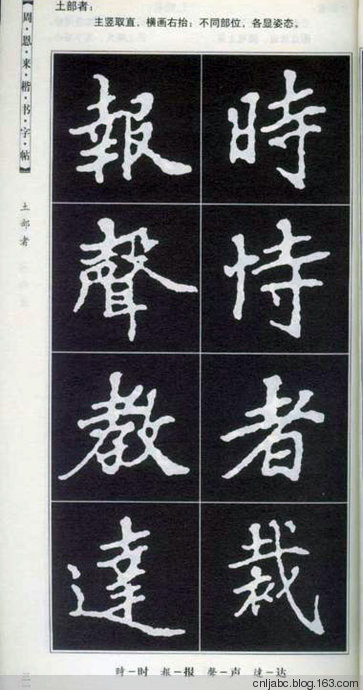 土部者:
主竖取直,横画右抬;不同部位,各显姿态。
【周·恩·来·楷·书·字·帖】
土部者
時恃者裁
報聲教達
時-时 報-报 聲-声 達-达
cnljabc.blog.163.com